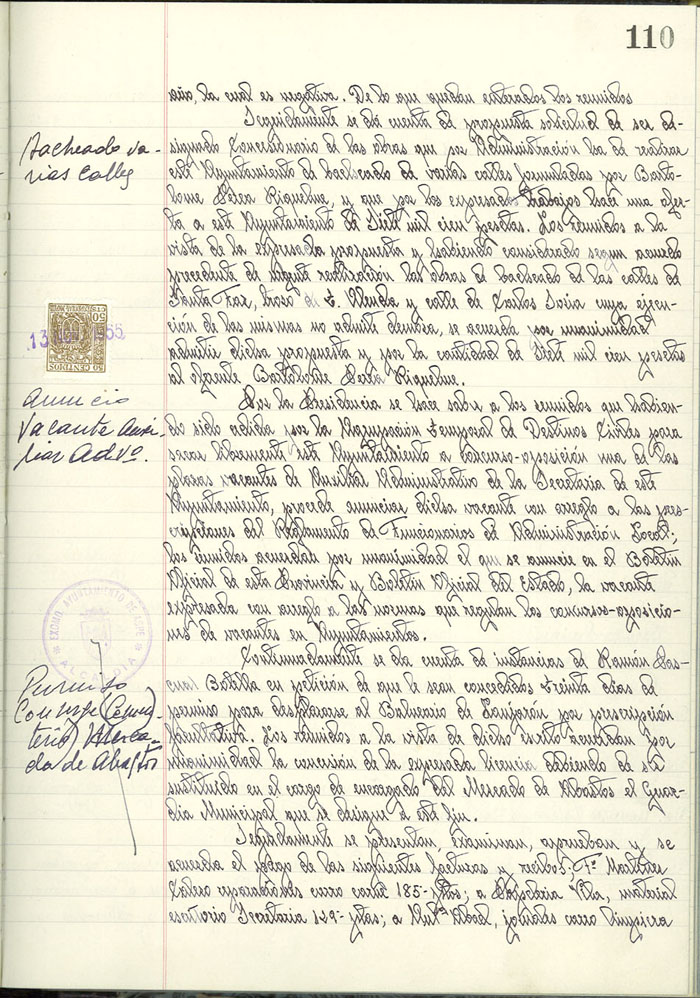 110
año, la cual es negativa. De lo que quedan enterados los reunidos
Seguidamente se dá cuenta de propuesta solicitud de ser de-
signado Concesionario de las obras que por Administración ha de realizar
este Ayuntamiento de bacheado de varias calles formuladas por Barto-
lome Perea Riquelme, y que por los expresados trabajos hace una ofer-
ta a este Ayuntamiento de Siete mil cien pesetas. Los reunidos a la
vista de la expresada propuesta y habiendo considerado segun acuerdo
precedente de urgente realización las obras de bacheado de las calles de
Santa Faz, trozo de S. Aleada y calle de Carlos Soria cuya ejecu-
ción de las mismas no admite demora, se acuerda por unanimidad
admitir dicha propuesta y por la cantidad de Siete mil cien pesetas
al oferente Bartolome Perea Riquelme.
Por la Presidencia se hace saber a los reunidos que habien-
do sido cedida por la Agrupación Temporal de Destinos Civiles para
sacar libremente este Ayuntamiento a concurso-oposición una de las
plazas vacantes de Auxiliar Administrativo de la Secretaria de este
Ayuntamiento, procede anunciar dicha vacante con arreglo a las pres-
cripciones del Reglamento de Funcionarios de Administración Local;
los reunidos acuerdan por unanimidad el que se anuncie en el Boletin
Oficial de esta Provincia y Boletin Oficial del Estado, la vacante
expresada con arreglo a las normas que regulan los concursos-oposicio-
nes de vacantes en Ayuntamientos.
Continuadamente se da cuenta de instancias de Ramón Pas-
cual Botella en petición de que le sean concedidos treinta dias de
permiso para desplazarse al Balneario de Lanjarón por prescripción
facultativa. Los reunidos a la vista de dicho escrito acuerdan por
unanimidad la concesión de la expresada licencia debiendo de ser
sustituido en el cargo de encargado del Mercado de Abastos el Guar-
dia Municipal que se designe a este fin.
Seguidamente se presentan, examinan, aprueban y se
acuerda el pago de las siguientes facturas y recibos: Fº Martinez
reparaciones carro 185- ptas; a Papeleria material
escritorio Secretaria 129- ptas; a Antº Abad, jornales carro limpieza
Bacheado va-
rias calles
50 CENTIMOS
13 1955
anuncio
vacante Auxi-
liar Advº.
EXCMO. AYUNTAMIENTO DE ASPE
ALCALDIA
Permiso
Conserje (Cemen-
terio) Merca-
do de Abastos